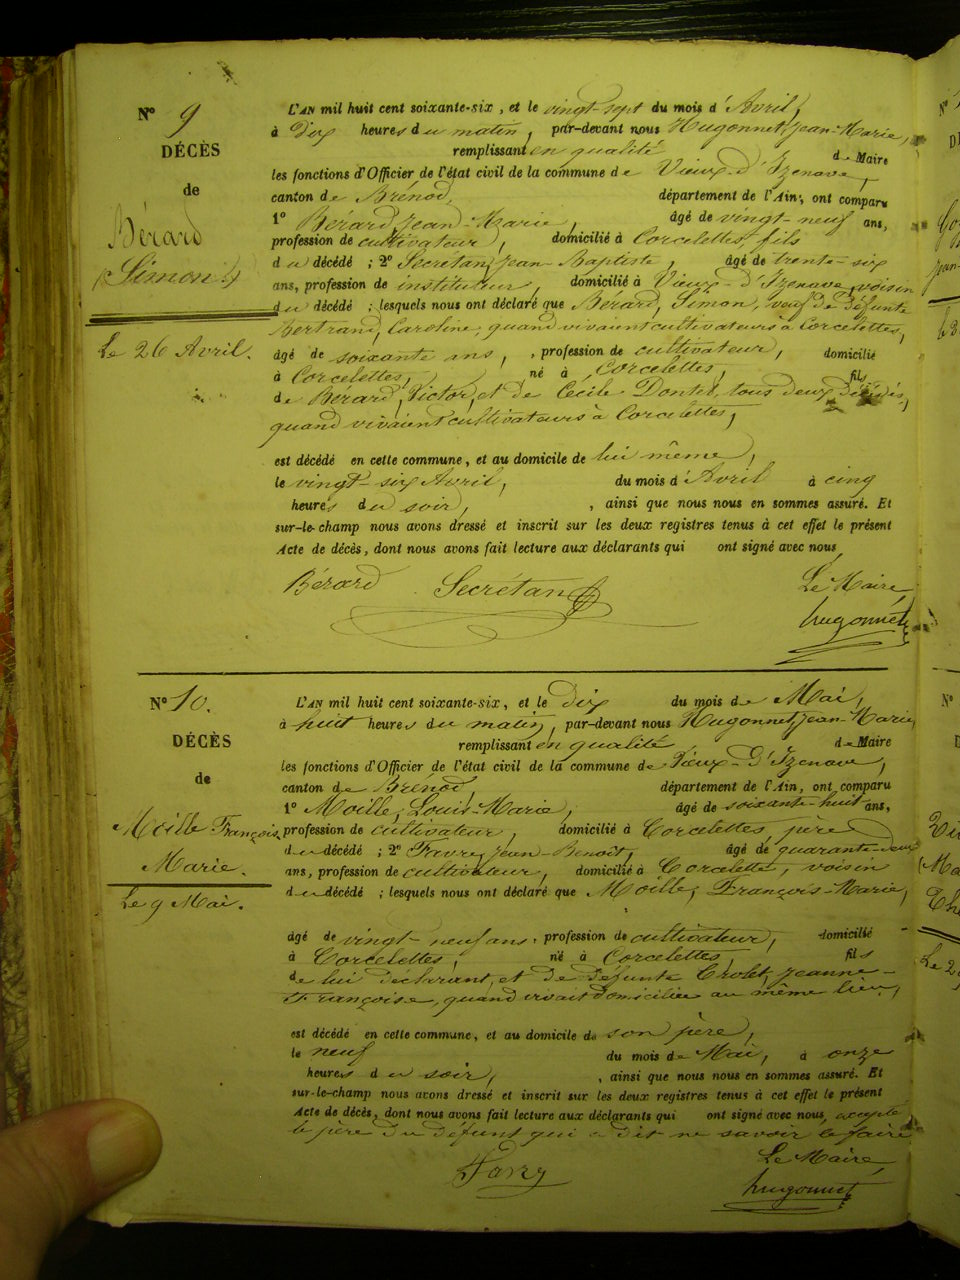 N° 9
DÉCÈS
de
Bérard
Simon
Le 26 Avril.
L'AN mil huit cent soixante-six, et le vingt-sept du mois d'Avril,
à Dix heures du matin, par-devant nous Hugonnet, Jean-Marie,
remplissant en qualité de Maire
les fonctions d'Officier de l'état civil de la commune de Vieux-d'Izenave,
canton de Brénod, département de l'Ain, ont comparu
1° Bérard, Jean-Marie, âgé de vingt-neuf ans,
profession de cultivateur, domicilié à Corcelettes, fils
du décédé ; 2° Secrétan, Jean-Baptiste, âgé de trente-six
ans, profession de instituteur, domicilié à Vieux-d'Izenave, voisin
du décédé ; lesquels nous ont déclaré que Bérard, Simon, veuf de défunte
Bertrand, Caroline, quand vivaient cultivateurs à Corcelettes,
âgé de soixante ans, profession de cultivateur, domicilié
à Corcelettes, né à Corcelettes, fils
de Bérard, Victor, et de Cécile tous deux décédés,
quand vivaient cultivateurs à Corcelettes,
est décédé en cette commune, et au domicile de lui même,
le vingt-six Avril, du mois d'Avril à cinq
heures du soir, , ainsi que nous nous en sommes assuré. Et
sur-le-champ nous avons dressé et inscrit sur les deux registres tenus à cet effet le présent
Acte de décès, dont nous avons fait lecture aux déclarants qui ont signé avec nous,
Bérard Secrétan Le Maire,
hugonnet
N° 10.
DÉCÈS
de
Moille François
Marie.
Le 9 Mai.
L'AN mil huit cent soixante-six, et le Dix du mois de Mai,
à huit heures du matin, par-devant nous Hugonnet, Jean-Marie,
remplissant en qualité de Maire
les fonctions d'Officier de l'état civil de la commune de Vieux-d'Izenave,
canton de Brénod, département de l'Ain, ont comparu
1° Moille, Louis-Marie, âgé de soixante-huit ans,
profession de cultivateur, domicilié à Corcelettes, père
du décédé ; 2° Favry, Jean-Benoît, âgé de quarante-deux
ans, profession de cultivateur, domicilié à Corcelettes, voisin
du décédé ; lesquels nous ont déclaré que Moille, François-Marie,
âgé de vingt-neuf ans, profession de cultivateur, domicilié
à Corcelettes, né à Corcelettes, fils
de lui déclarant, et de défunte Crolet, Jeanne-
Françoise, quand vivait domiciliée au même lieu,
est décédé en cette commune, et au domicile de son père,
le neuf du mois de Mai, à onze
heures du soir, , ainsi que nous nous en sommes assuré. Et
sur-le-champ nous avons dressé et inscrit sur les deux registres tenus à cet effet le présent
Acte de décès, dont nous avons fait lecture aux déclarants qui ont signé avec nous, excepté
le père du défunt qui a dit ne savoir le faire
Favry Le Maire,
hugonnet